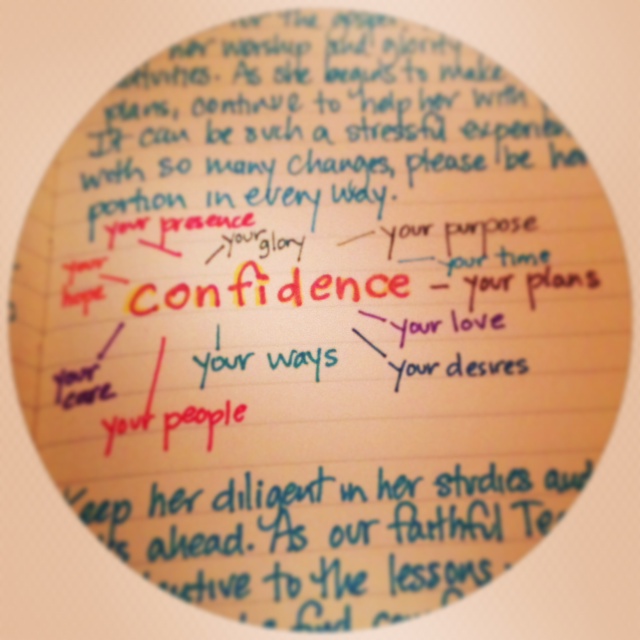 for the
her worship and glority
activities. As she begins to make
plans, continue to help her with
It can be such a stressful
with so many changes, please be her
portion in every way.
your presence
your glory
your purpose
your time
your hope
confidence
your plans
your love
your care
your ways
your desires
your people
Keep her diligent in her studies and
ahead. As our faithful
to the lessons
find